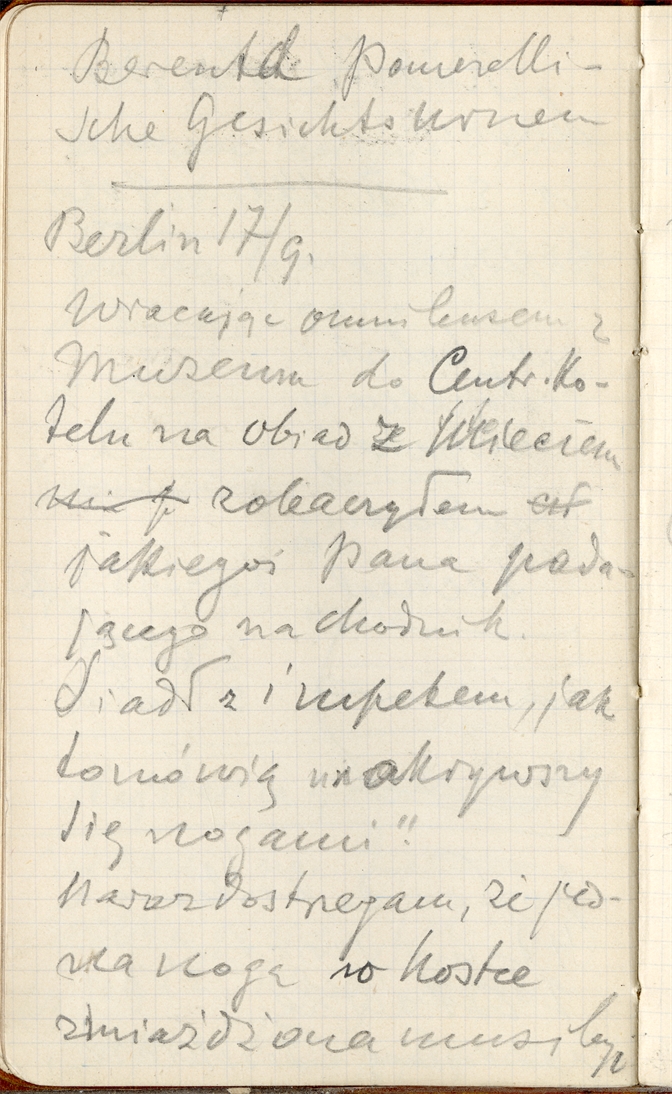 Berendt Pomerelli-
sche Gesichtsurnen
Berlin 17/9.
Wracając omnibusem z
Muzeum do Centr. Ho-
telu na obiad z Mieciem
zobaczyłem
jakiegoś Pana pada-
jącego na chodnik.
Siadł z impetem, jak
to mówią „nakrywszy
się nogami"
Naraz dostrzegam, że jed-
na noga w kostce
zmiażdżona musi być